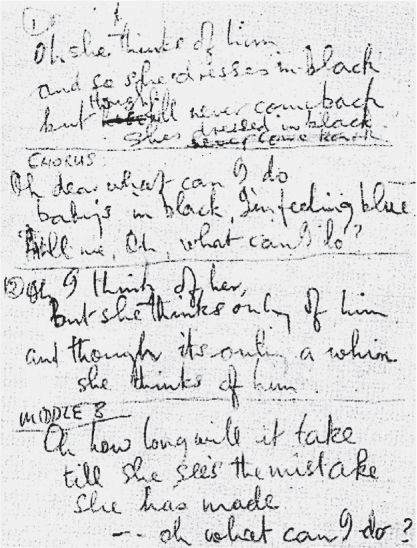 1
Oh she thinks of him
and so she dresses in black
but though he'll never come back
she's dressed in black
never come back
CHORUS
Oh dear what can I do
baby's in black, I'm feeling blue
tell me, Oh, what can I do?
2 Oh I think of her,
But she thinks only of him
and though its only a whim
she thinks of him.
MIDDLE 8
Oh how long will it take
till she sees the mistake
she has made
-- oh what can I do?